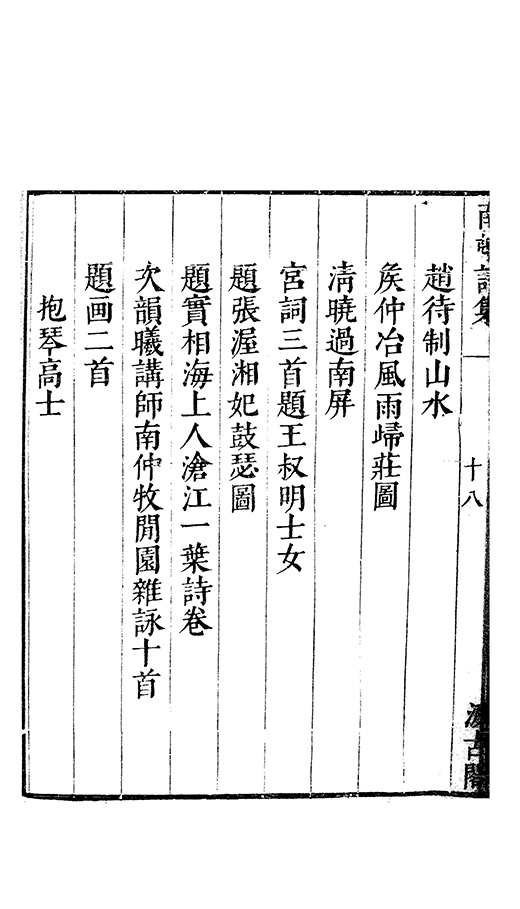 南邨詩集 一 十八 汲古閣
趙待制山水
矦仲冶風雨㱕莊圖
清曉過南屏
宮詞三首題王叔明士女
題張渥湘妃鼓瑟圖
題實相海上人滄江一葉詩卷
次韻曦講師南仲牧閒園雜詠十首
題画二首
抱琴高士